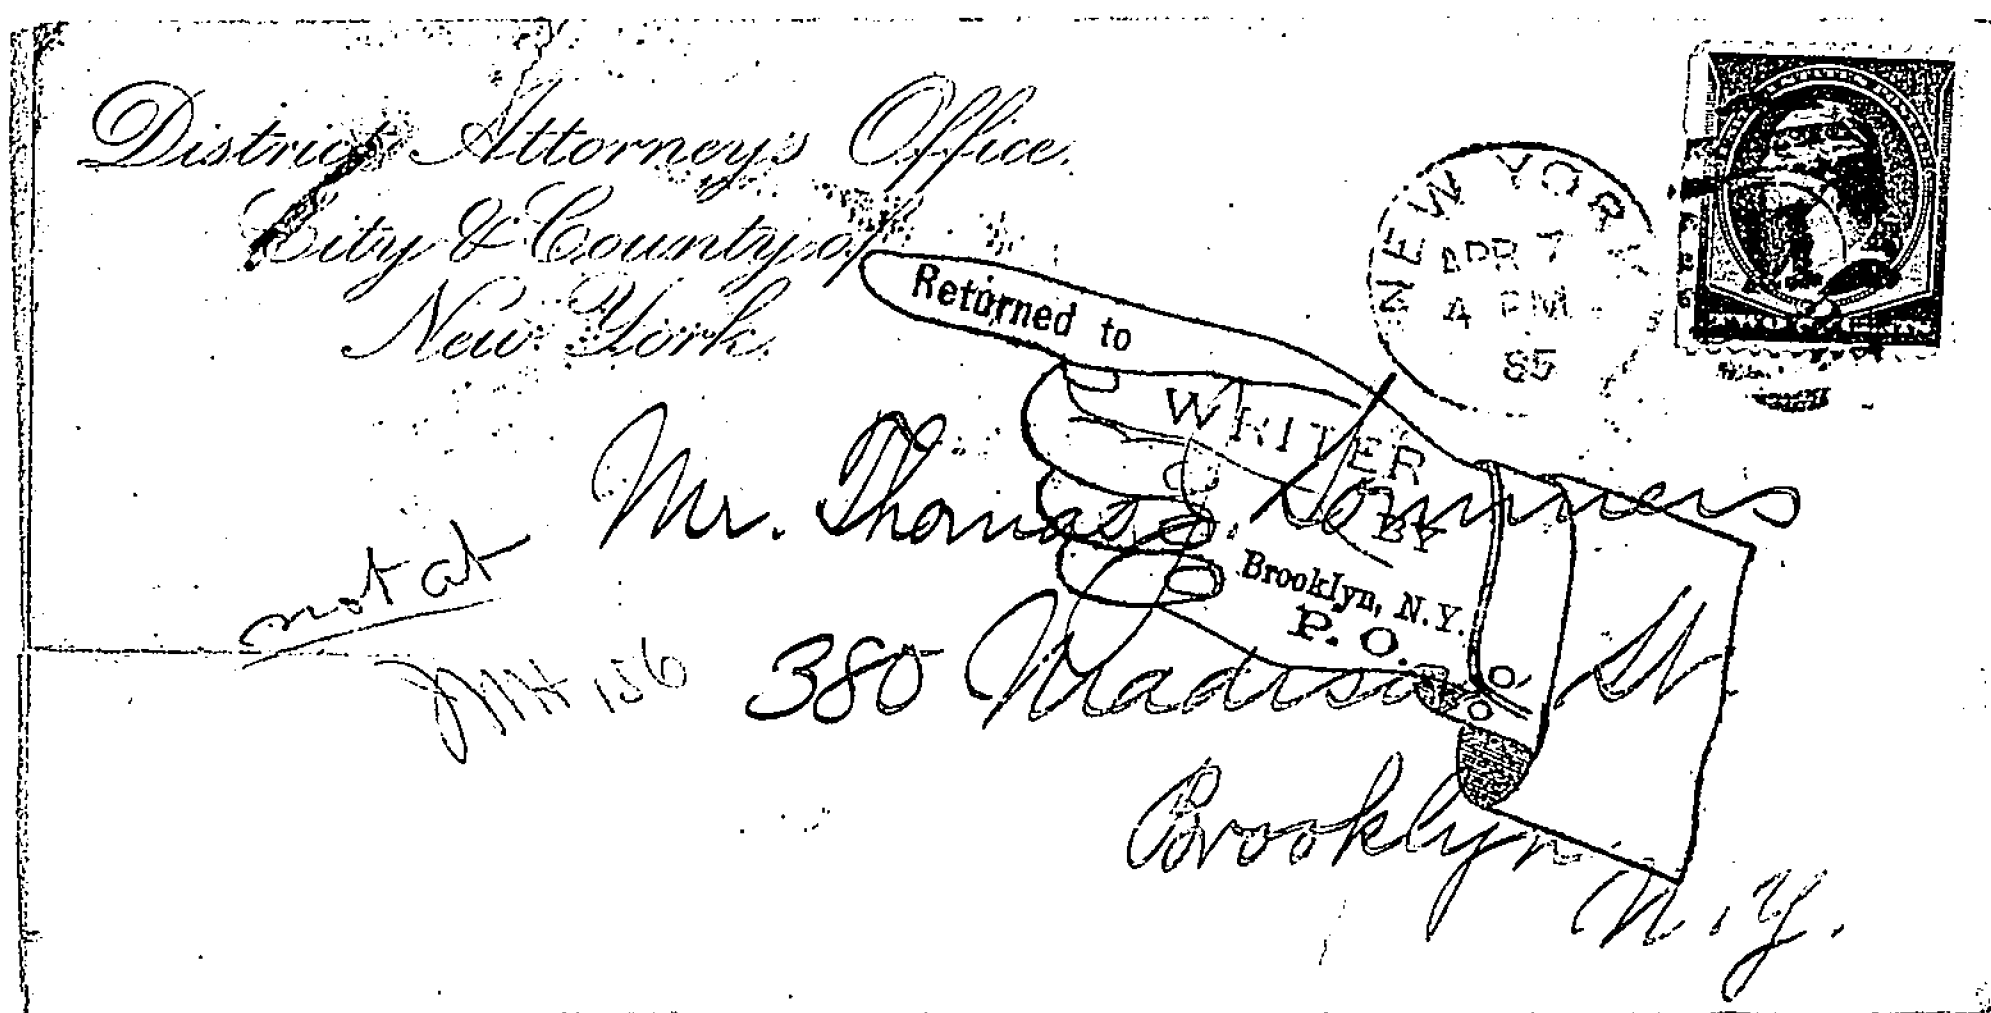 District Attorney's Office.
City & County of
New York.
NEW YORK
APR 7
4 PM
85
TWO CENTS
Returned to
WRITER
BY
Brooklyn, N.Y.
P. O.
Mr. Thomas J. Sommers
380 Madison St.
Brooklyn
N.Y.
not at
156